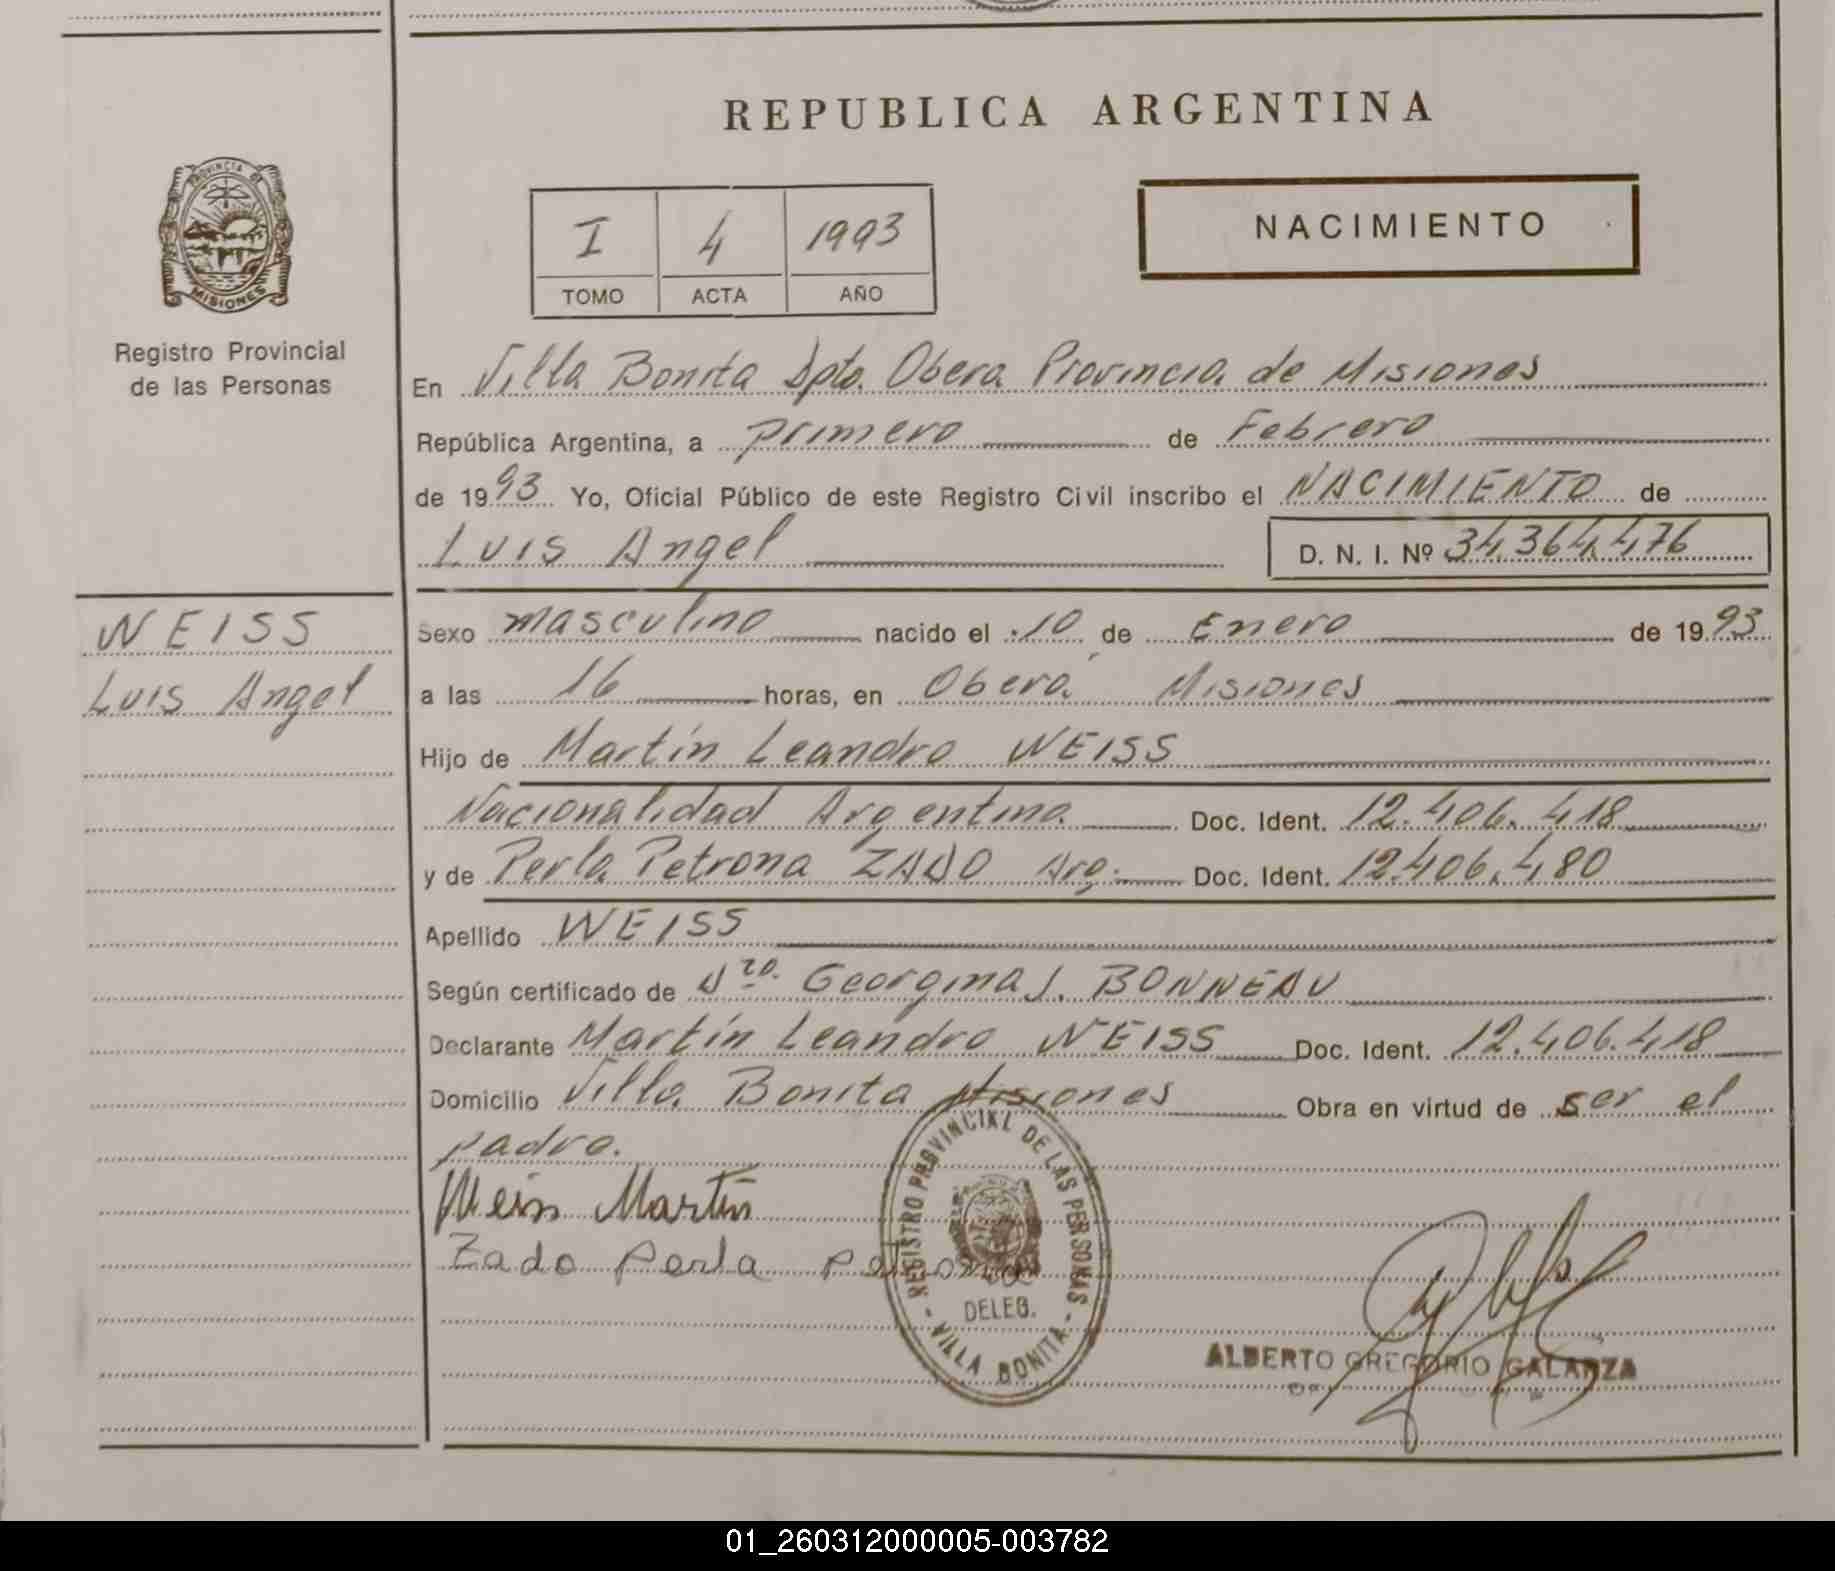 REPUBLICA ARGENTINA
PROVINCIA DE
MISIONES
Registro Provincial
de las Personas
I 4 1993
TOMO ACTA AÑO
NACIMIENTO
En Villa Bonita Dpto. Obera Provincia de Misiones
República Argentina, a primero de Febrero
de 1993 Yo, Oficial Público de este Registro Civil inscribo el NACIMIENTO de
Luis Angel D. N. I. Nº 34.364.476
WEISS
Luis Angel
Sexo masculino nacido el 10 de Enero de 1993
a las 16 horas, en Oberá Misiones
Hijo de Martín Leandro WEISS
Nacionalidad Argentina Doc. Ident. 12.406.418
y de Perla Petrona ZADO Arg. Doc. Ident. 12.406.480
Apellido WEISS
Según certificado de Georgina J. BONNEAU
Declarante Martín Leandro WEISS Doc. Ident. 12.406.418
Domicilio Villa Bonita Misiones Obra en virtud de ser el
padre.
Weiss Martín
Zado Perla
REGISTRO PROVINCIAL DE LAS PERSONAS
DELEG.
- VILLA BONITA -
ALBERTO GREGORIO GALARZA
01_260312000005-003782